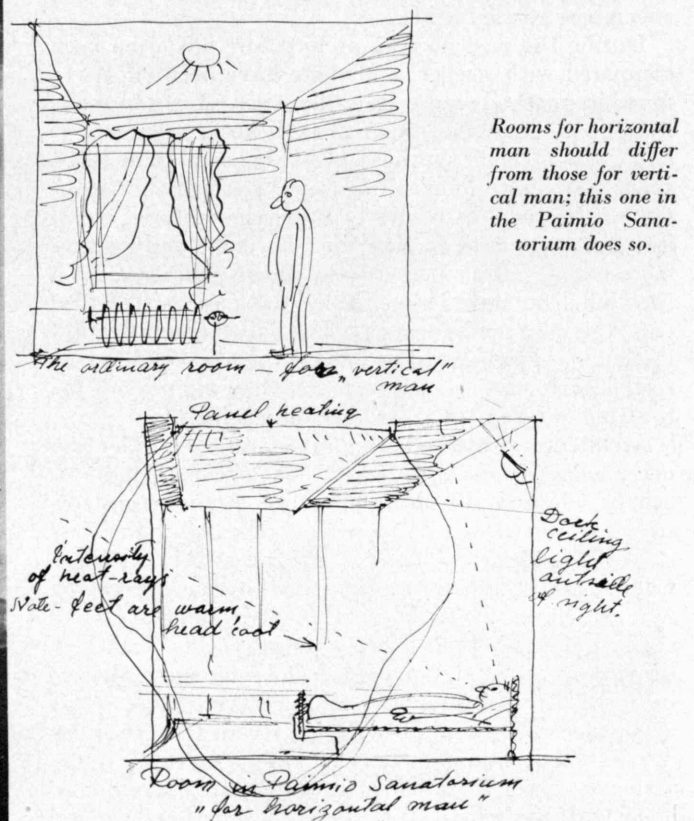 Rooms for horizontal
man should differ
from those for verti-
cal man; this one in
the Paimio Sana-
torium does so.
The ordinary room – for „vertical"
man
Panel heating
Intensity
of heat-rays
Note - feet are warm,
head cool
Dark
ceiling
light
outside
of sight.
Room in Paimio Sanatorium
„for horizontal man"